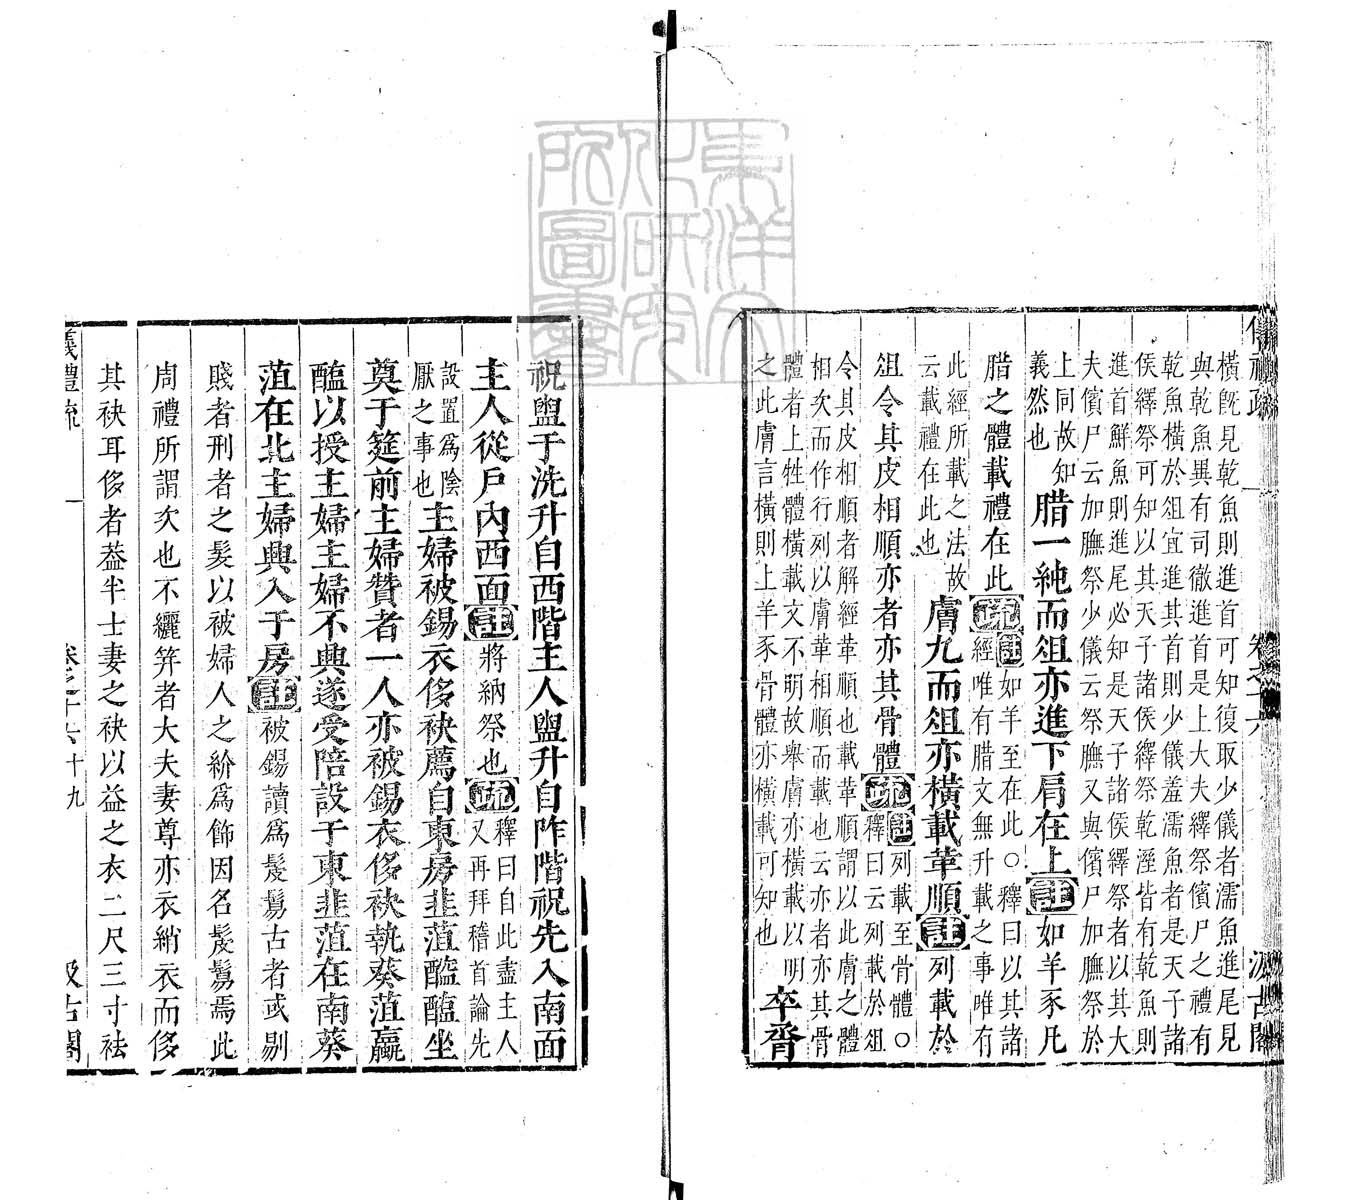 橫旣見乾魚則進首可知復取少儀者濡魚進尾見
與乾魚異有司徹進首是上大夫繹祭儐尸之禮有
乾魚橫於俎宜進其首則少儀羞濡魚者是天子諸
侯繹祭可知以其天子諸侯繹祭乾溼皆有乾魚則
進首鮮魚則進尾必知是天子諸侯繹祭者以其大
夫儐尸云加膴祭少儀云祭膴又與儐尸加膴祭於
上同故知
義然也
腊一純而俎亦進下肩在上註如羊豕凡
腊之體載禮在此疏註如羊至在此○釋曰以其諸
經唯有腊文無升載之事唯有
此經所載之法故
云載禮在此也
膚九而俎亦橫載革順註列載於
俎令其皮相順亦者亦其骨體疏註列載至骨體○
釋曰云列載於俎
令其皮相順者解經革順也載革順謂以此膚之體
相次而作行列以膚革相順而載也云亦者亦其骨
體者上牲體橫載文不明故舉膚亦橫載以明
之此膚言橫則上羊豕骨體亦橫載可知也
卒脀
祝盥于洗升自西階主人盥升自阼階祝先入南面
主人從戶內西面註將納祭也疏釋曰自此盡主人
又再拜稽首論先
設置爲陰
厭之事也
主婦被錫衣侈袂薦自東房韭菹醓醢坐
奠于筵前主婦贊者一人亦被錫衣侈袂執葵菹蠃
醢以授主婦主婦不興遂受陪設于東韭菹在南葵
菹在北主婦興入于房註被錫讀爲髲鬄古者或剔
賤者刑者之髮以被婦人之紒爲飾因名髲鬄焉此
周禮所謂次也不纚笄者大夫妻尊亦衣綃衣而侈
其袂耳侈者葢半士妻之袂以益之衣二尺三寸袪
儀禮疏 卷之十六 十九 汲古閣